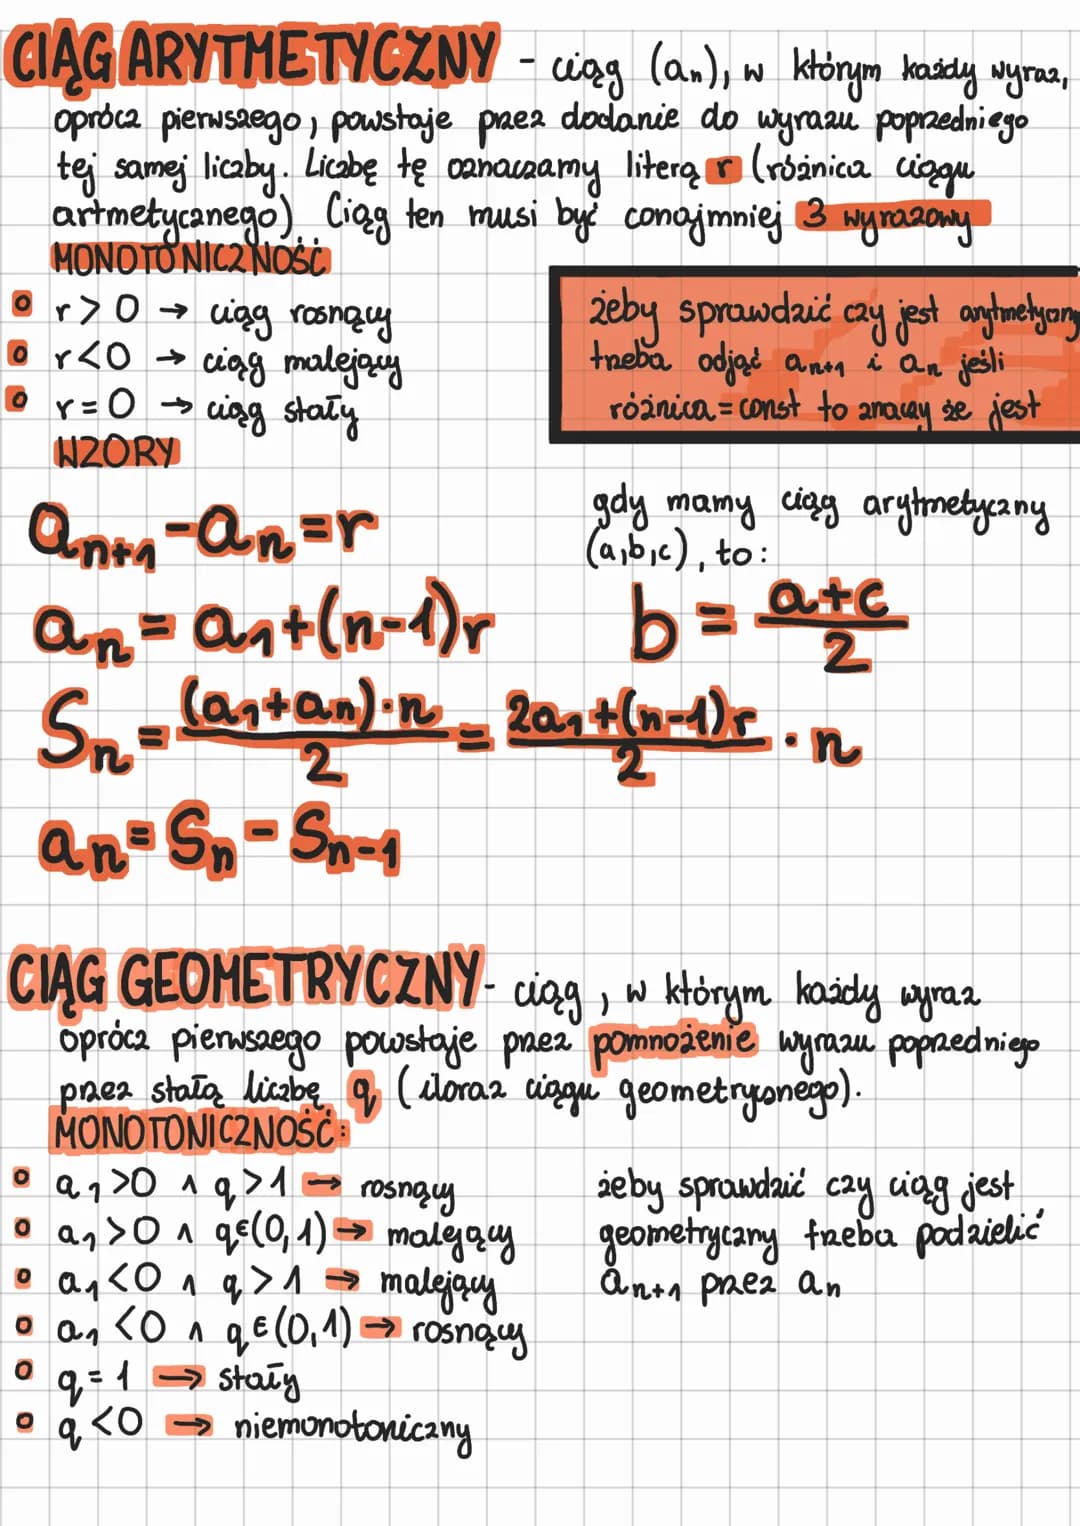 CIĄG ARYTMETYCZNY - ciąg (an), w którym każdy wyraz,
oprócz pierwszego, powstaje przez dodanie do wyrazu poprzedniego
tej samej liczby. Liczbę tę oznaczamy literą r (różnica ciągu
artmetycznego). Ciąg ten musi być conajmniej 3 wyrazowy
MONOTONICZNOŚĆ
r > 0 → ciąg rosnący
r < 0 → ciąg malejący
r = 0 → ciąg stały
żeby sprawdzić czy jest arytmetyczny
trzeba odjąć an+1 i an jeśli
różnica = const to znaczy że jest
WZORY
an+1 - an = r
an = a1 + (n-1)r
Sn = (a1+an)·n / 2 = 2a1+(n-1)r / 2 · n
an = Sn - Sn-1
gdy mamy ciąg arytmetyczny
(a,b,c), to:
b = a+c / 2
CIĄG GEOMETRYCZNY - ciąg, w którym każdy wyraz
oprócz pierwszego powstaje przez pomnożenie wyrazu poprzedniego
przez stałą liczbę q (iloraz ciągu geometrysnego).
MONOTONICZNOŚĆ:
a1>0 ∧ q>1 → rosnący
a1>0 ∧ q∈(0,1) → malejący
a1<0 ∧ q>1 → malejący
a1<0 ∧ q∈(0,1) → rosnący
q=1 → stały
q<0 → niemonotoniczny
żeby sprawdzić czy ciąg jest
geometryczny trzeba podzielić
an+1 przez an